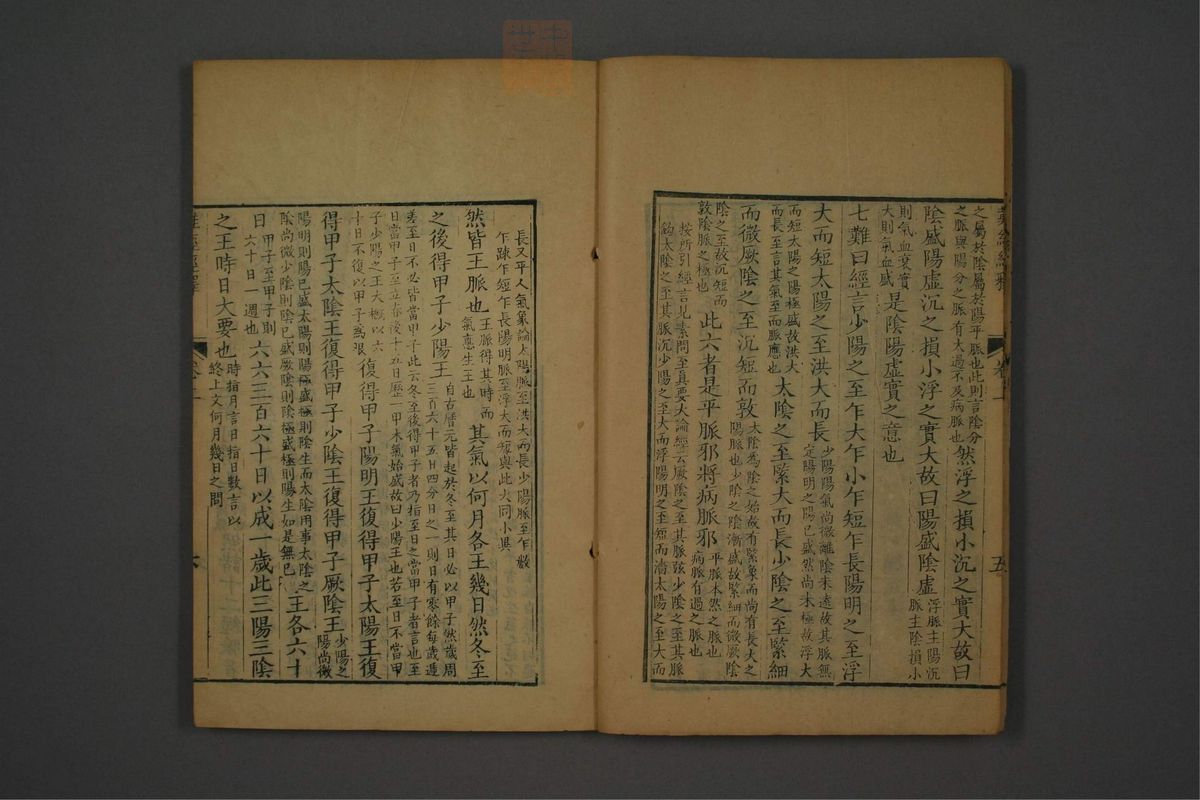 之屬於陰屬於陽平脈也此則言陰分
之脈與陽分之脈有大過不及病脈也
然浮之損小沉之實大故曰
陰盛陽虛沉之損小浮之實大故曰陽盛陰虛
浮脈主陽沉
脈主陰損小
則氣血衰實
大則氣血盛
是陰陽虛實之意也
七難曰經言少陽之至乍大乍小乍短乍長陽明之至浮
大而短太陽之至洪大而長
少陽陽氣尚微離陰未遠故其脈無
定陽明之陽已盛然尚未極故浮大
而短太陽之陽極盛故洪大
而長至言其氣至而脈應也
太陰之至緊大而長少陰之至緊細
而微厥陰之至沉短而敦
太陰為陰之始故有緊象而尚有長大之
陽脈也少陰之陰漸盛故緊細而微厥陰
陰之至故沉短而
敦陰脈之極也
此六者是平脈邪將病脈邪
平脈本然之脈也
病脈有過之脈也
按所引經言見素問至真要大論經云厥陰之至其脈弦少陰之至其脈
鈎太陰之至其脈沉少陽之至大而浮陽明之至短而濇太陽之至大而
五
長又平人氣象論太陽脈至洪大而長少陽脈至乍數
乍疎乍短乍長陽明脈至浮大而短與此大同小異
然皆王脈也
王脈得其時而
氣應生王也
其氣以何月各王幾日然冬至
之後得甲子少陽王
自古曆元皆起於冬至其日必以甲子然歲周
三百六十五日四分日之一則日有零餘每歲遞
差至日不必皆當甲子此云冬至後得甲子者乃指至日之當甲子者言也至
日當甲子至立春後十五日歷一甲木氣始盛故曰少陽王也若至日不當甲
子少陽之王大概以六
十日不復以甲子為限
復得甲子陽明王復得甲子太陽王復
得甲子太陰王復得甲子少陰王復得甲子厥陰王
少陽之
陽尚微
陽明則陽已盛太陽則陽極盛極則陰生而太陰用事太陰之
陰尚微少陰則陰已盛厥陰則陰極盛極則陽生如是無已
王各六十
日
甲子至甲子則
六十日一週也
六六三百六十日以成一歲此三陽三陰
之王時日大要也
時指月言日指日數言以
終上文何月幾日之問
六